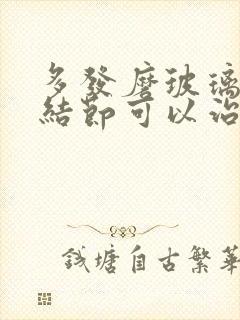 多發磨玻璃
結節可以治
錢塘自古繁華